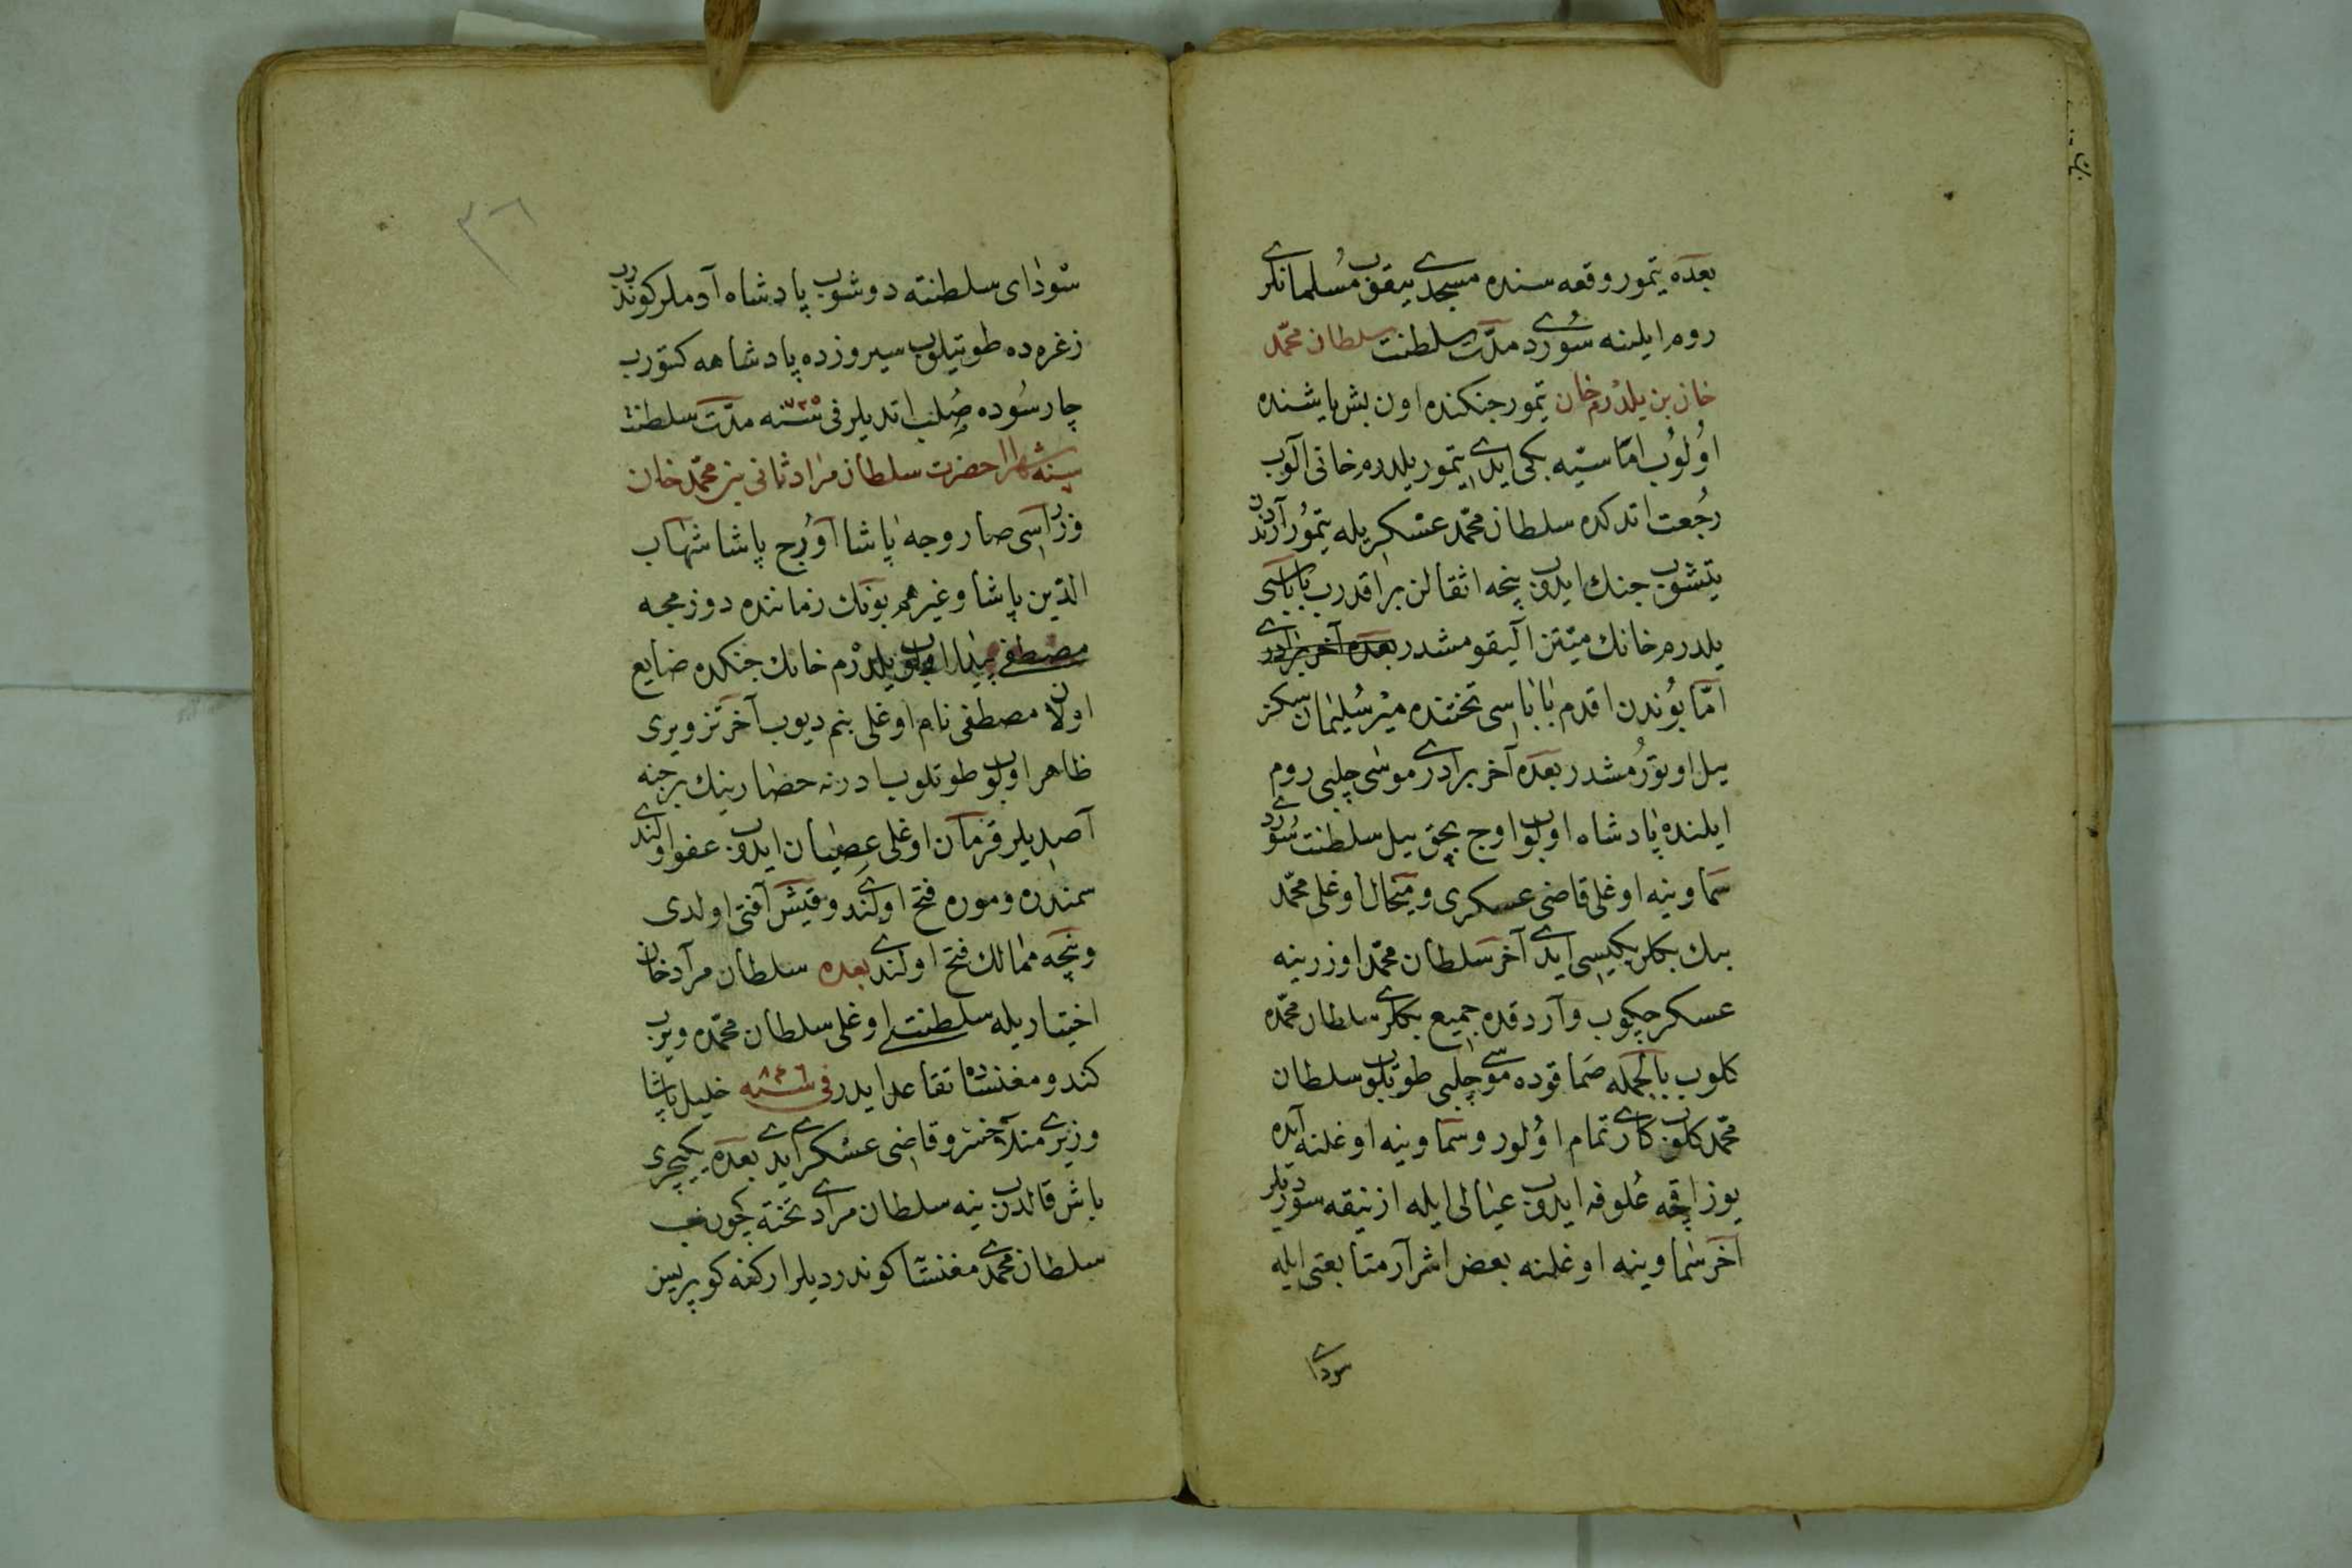 بعده تیمور وقعه سنده مسجدی ییقوب مسلمانلری
روم ایلینه سوردی مدت سلطنت سلطان محمد
خان بن یلدرم خان تیمور جنکنده اون بش یاشنده
اولوب اماسیه بکی ایدی تیمور یلدرم خانی الوب
رجعت اتدکده سلطان محمد عسکریله تیمور آردندن
یتیشوب جنك ایدوب نیچه اثقالن براقدرب باباسی
یلدرم خانك میتن الیقومشدر بعده آخر برادری
اما بوندن اقدم باباسی تختنده میر سلیمان سکز
ییل اوتورمشدر بعده آخر برادری موسی چلبی روم
ایلنده پادشاه اولوب اوچ بچق ییل سلطنت سوردی
سماوینه اوغلی قاضی عسکری و میخال اوغلی محمد
بك بکلربکیسی ایدی آخر سلطان محمد اوزرینه
عسکر چکوب واردقده جمیع بکلری سلطان محمده
کلوب بالجمله صماقوده موسی چلبی طوتیلوب سلطان
محمد کلوب کاری تمام اولور و سماوینه اوغلنه آیده
یوز اقچه علوفه ایدوب عیالی ایله ازنیقه سوردیلر
آخر سماوینه اوغلنه بعض اشرار متابعتی ایله
سودای
٣٦
سودای سلطنته دوشوب پادشاه آدملر کوندرب
زغره ده طوتیلوب سیروزده پادشاهه کتورب
چارسوده صلب اتدیلر فی سنه ٧٢٥ مدت سلطنت
حضرت سلطان مراد ثانی بن محمد خان
وزراسی صاروجه پاشا اورج پاشا شهاب
الدین پاشا و غیرهم بونك زماننده دوزمجه
مصطفی پیدا اولوب یلدرم خانك جنکده ضایع
اولان مصطفی نام اوغلی بنم دیوب آخر تزویری
ظاهر اولوب طوتلوب ادرنه حصارینك برجنه
آصدیلر قرمان اوغلی عصیان ایدوب عفو اولندی
سمندره و موره فتح اولندی و قیش آفتی اولدی
و نیچه ممالك فتح اولندی بعده سلطان مراد خان
اختیاریله سلطنتی اوغلی سلطان محمده ویرب
کندو مغنساده تقاعد ایدر فی سنه ٨٤٦ خلیل پاشا
وزیری منلا خسرو قاضی عسکری ایدی بعده یکیچری
باش قالدرب ینه سلطان مرادی تخته کچورب
سلطان محمدی مغنسا کوندردیلر ارکنه کوپریسن